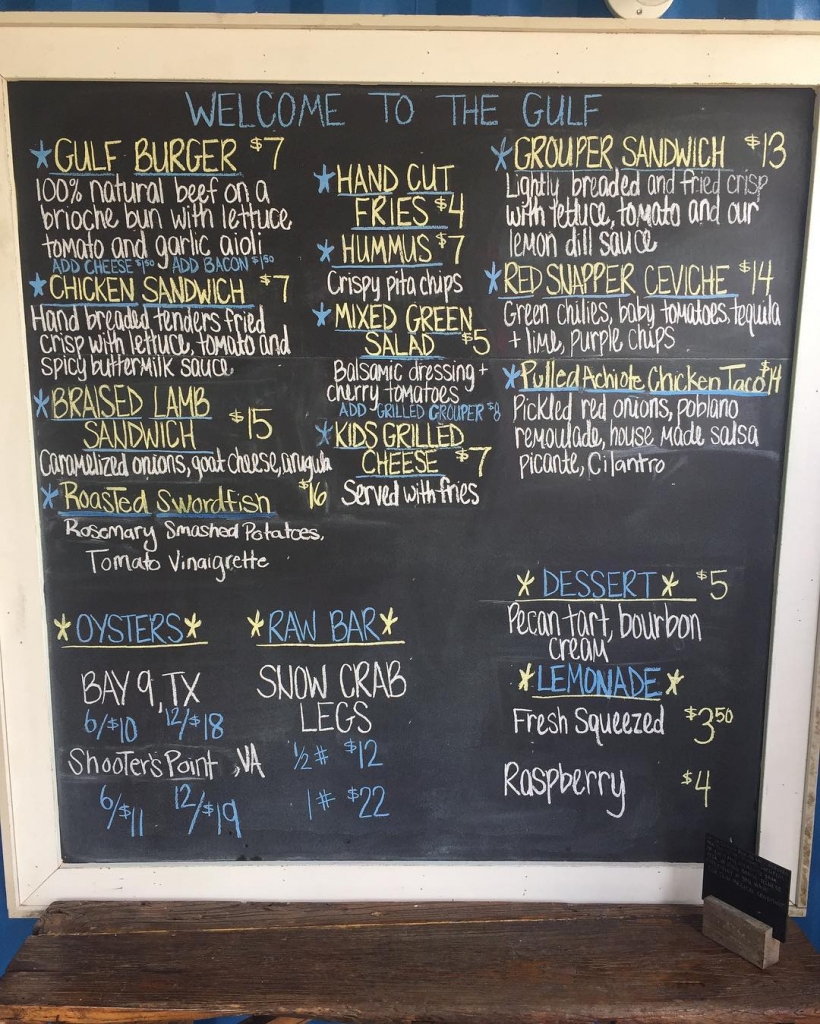 WELCOME TO THE GULF
GULF BURGER $7
100% natural beef on a
brioche bun with lettuce
tomato and garlic aioli
ADD CHEESE $1.50 ADD BACON $1.50
CHICKEN SANDWICH $7
Hand breaded tenders fried
crisp with lettuce, tomato and
spicy buttermilk sauce
BRAISED LAMB
SANDWICH $15
Caramelized onions, goat cheese, arugula
Roasted Swordfish $16
Rosemary Smashed Potatoes,
Tomato Vinaigrette
HAND CUT
FRIES $4
HUMMUS $7
Crispy pita chips
MIXED GREEN
SALAD $5
Balsamic dressing +
cherry tomatoes
ADD GRILLED GROUPER $8
KIDS GRILLED
CHEESE $7
Served with fries
GROUPER SANDWICH $13
Lightly breaded and fried crisp
with lettuce, tomato and our
lemon dill sauce
RED SNAPPER CEVICHE $14
Green chilies, baby tomatoes, tequila
+ lime, purple chips
Pulled Achiote Chicken Taco $14
Pickled red onions, poblano
remoulade, house made salsa
picante, Cilantro
OYSTERS
BAY 9, TX
6/$10 12/$18
Shooter's Point, VA
6/$11 12/$19
RAW BAR
SNOW CRAB
LEGS
½# $12
1# $22
DESSERT $5
Pecan tart, bourbon
cream
LEMONADE
Fresh Squeezed $3.50
Raspberry $4